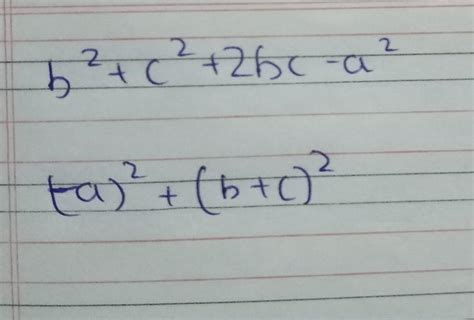 b² + c² + 2bc - a²
(-a)² + (b+c)²